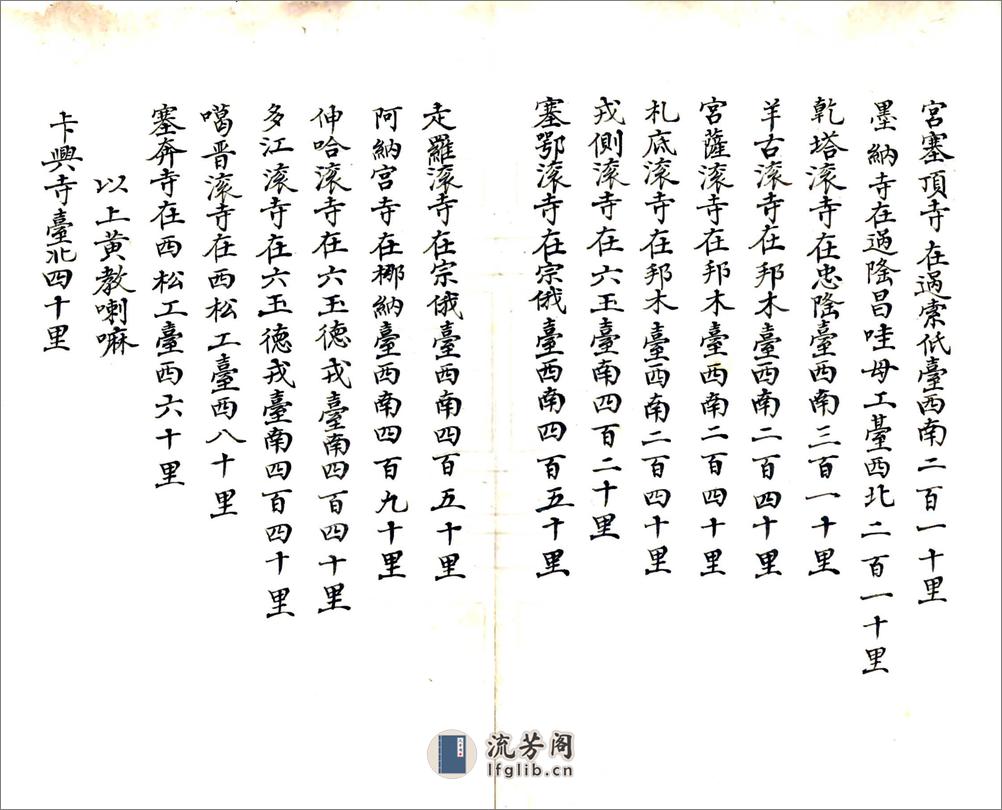 宮塞頂寺在過索低臺西南二百一十里
墨納寺在過隆昌哇母工臺西北二百一十里
乾塔滚寺在忠隆臺西南三百一十里
羊古滚寺在邦木臺西南二百四十里
宮薩滚寺在邦木臺西南二百四十里
札底滚寺在邦木臺西南二百四十里
戎側滚寺在六玉臺南四百二十里
塞鄂滚寺在宗俄臺西南四百五十里
走羅滚寺在宗俄臺西南四百五十里
阿納宮寺在梛納臺西南四百九十里
仲哈滚寺在六玉德戎臺南四百四十里
多江滚寺在六玉德戎臺南四百四十里
噶晋滚寺在西松工臺西八十里
塞奔寺在西松工臺西六十里
以上黃教喇嘛
卡興寺臺北四十里
流芳阁
lfglib.cn